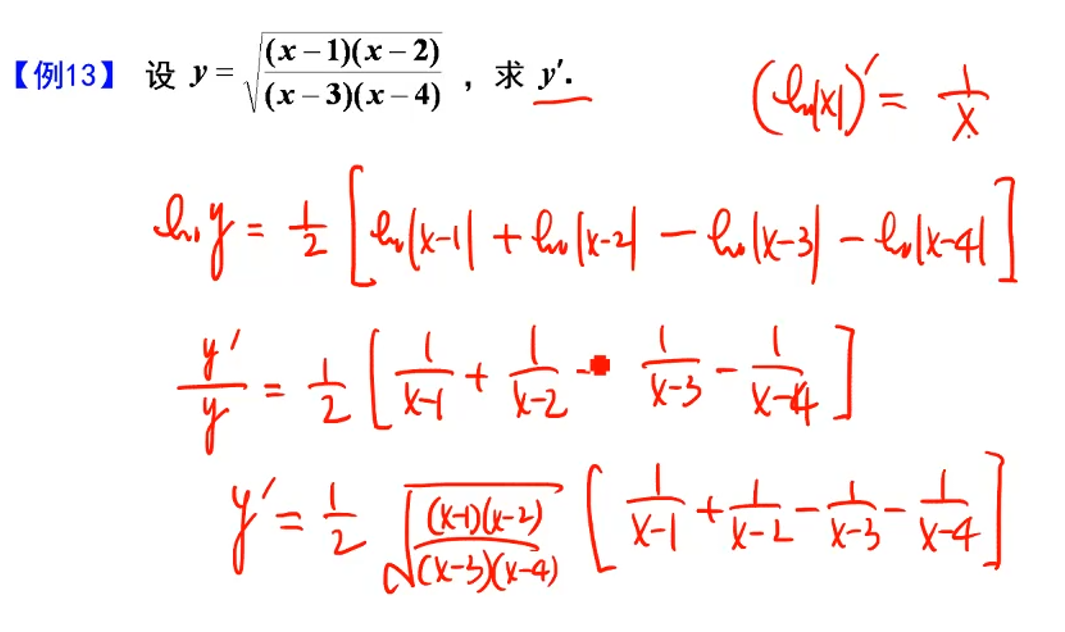 【例13】 设 y = √((x-1)(x-2)/((x-3)(x-4))) ，求 y′.
(ln|x|)′ = 1/x
ln y = 1/2 [ln|x-1| + ln|x-2| - ln|x-3| - ln|x-4|]
y′/y = 1/2 [1/(x-1) + 1/(x-2) - 1/(x-3) - 1/(x-4)]
y′ = 1/2 √((x-1)(x-2)/((x-3)(x-4))) [1/(x-1) + 1/(x-2) - 1/(x-3) - 1/(x-4)]